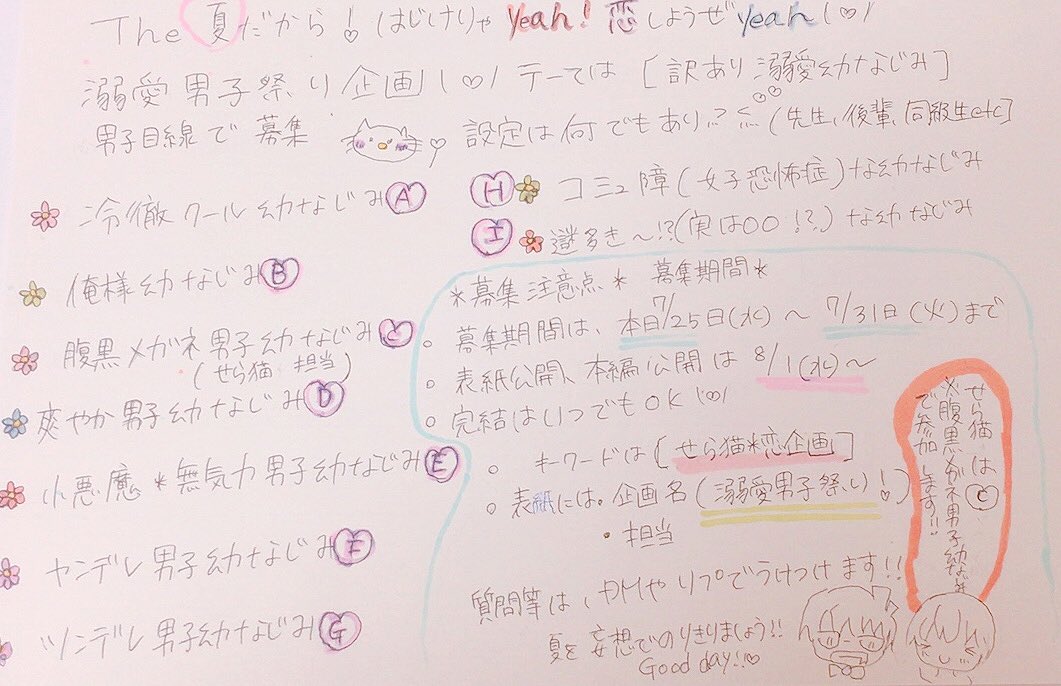 The 夏だから! はじけりゃ Yeah! 恋しようぜ yeah
溺愛男子祭り企画 テーマは [訳あり 溺愛幼なじみ]
男子目線で募集 設定は何でもあり? (先生、後輩、同級生etc]
冷徹クール幼なじみ A
俺様幼なじみ B
腹黒メガネ男子幼なじみ C
(せら猫 担当)
爽やか男子幼なじみ D
小悪魔*無気力男子幼なじみ E
ヤンデレ男子幼なじみ F
ツンデレ男子幼なじみ G
H コミュ障(女子恐怖症)な幼なじみ
I 謎多き〜!?(実は○○!?)な幼なじみ
*募集注意点* 募集期間*
。募集期間は、本日7/25日(水)〜7/31日(火)まで
。表紙公開、本編公開は8/1(水)〜
。完結はいつでもOK
。キーワードは[せら猫*恋企画]
。表紙には。企画名(溺愛男子祭り!)
・担当
せら猫はC
※腹黒メガネ男子幼なじみ
で参加します!!
質問等は、DMやリプでうけつけます!!
夏を妄想でのりきりましょう!!
Good day!!